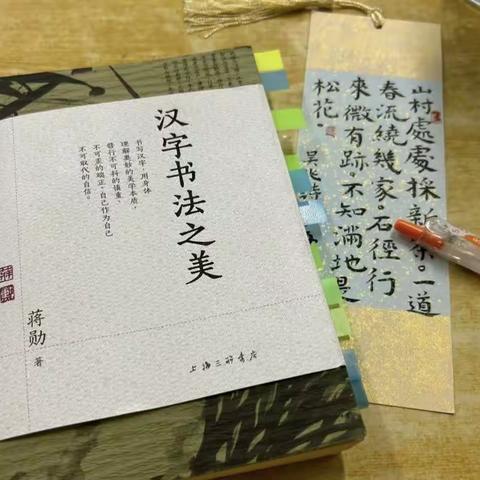 汉字书法之美
书写汉字，用身体
理解奥妙的美学本质，
行不可抖的慎重、
不可歪的端正，自己作为自己
不可取代的自信。
蒋勋 著
上海三联书店
山村處處採新茶。一道
春流繞幾家。石徑行
來微有跡。不知滿地是
松花。